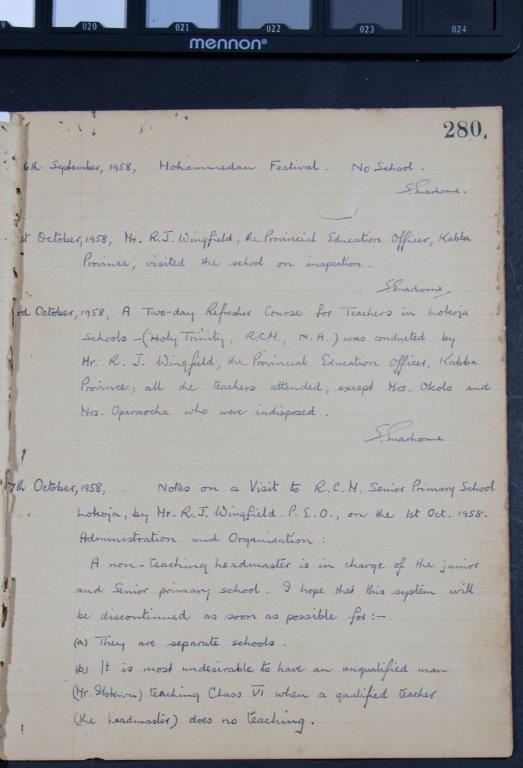 020 021 022 023 024
mennon®
280.
6th September, 1958, Mohammedan Festival. No School.
st October, 1958, Mr. R. J. Wingfield, the Provincial Education Officer, Kabba
Province, visited the school on inspection.
rd October, 1958, A Two-day Refresher Course for Teachers in Lokoja
Schools - (Holy Trinity, R.C.M., N.A.) was conducted by
Mr. R. J. Wingfield, the Provincial Education Officer, Kabba
Province; all the teachers attended, except Mrs. Okolo and
Mrs. Oparaocha who were indisposed.
7th October, 1958, Notes on a Visit to R.C.M. Senior Primary School
Lokoja, by Mr. R. J. Wingfield. P.E.O., on the 1st Oct. 1958.
Administration and Organisation:
A non-teaching headmaster is in charge of the junior
and Senior primary school. I hope that this system will
be discontinued as soon as possible for:-
(a) They are separate schools.
(b) It is most undesirable to have an unqualified man
(Mr. ) teaching Class VI when a qualified teacher
(the headmaster) does no teaching.